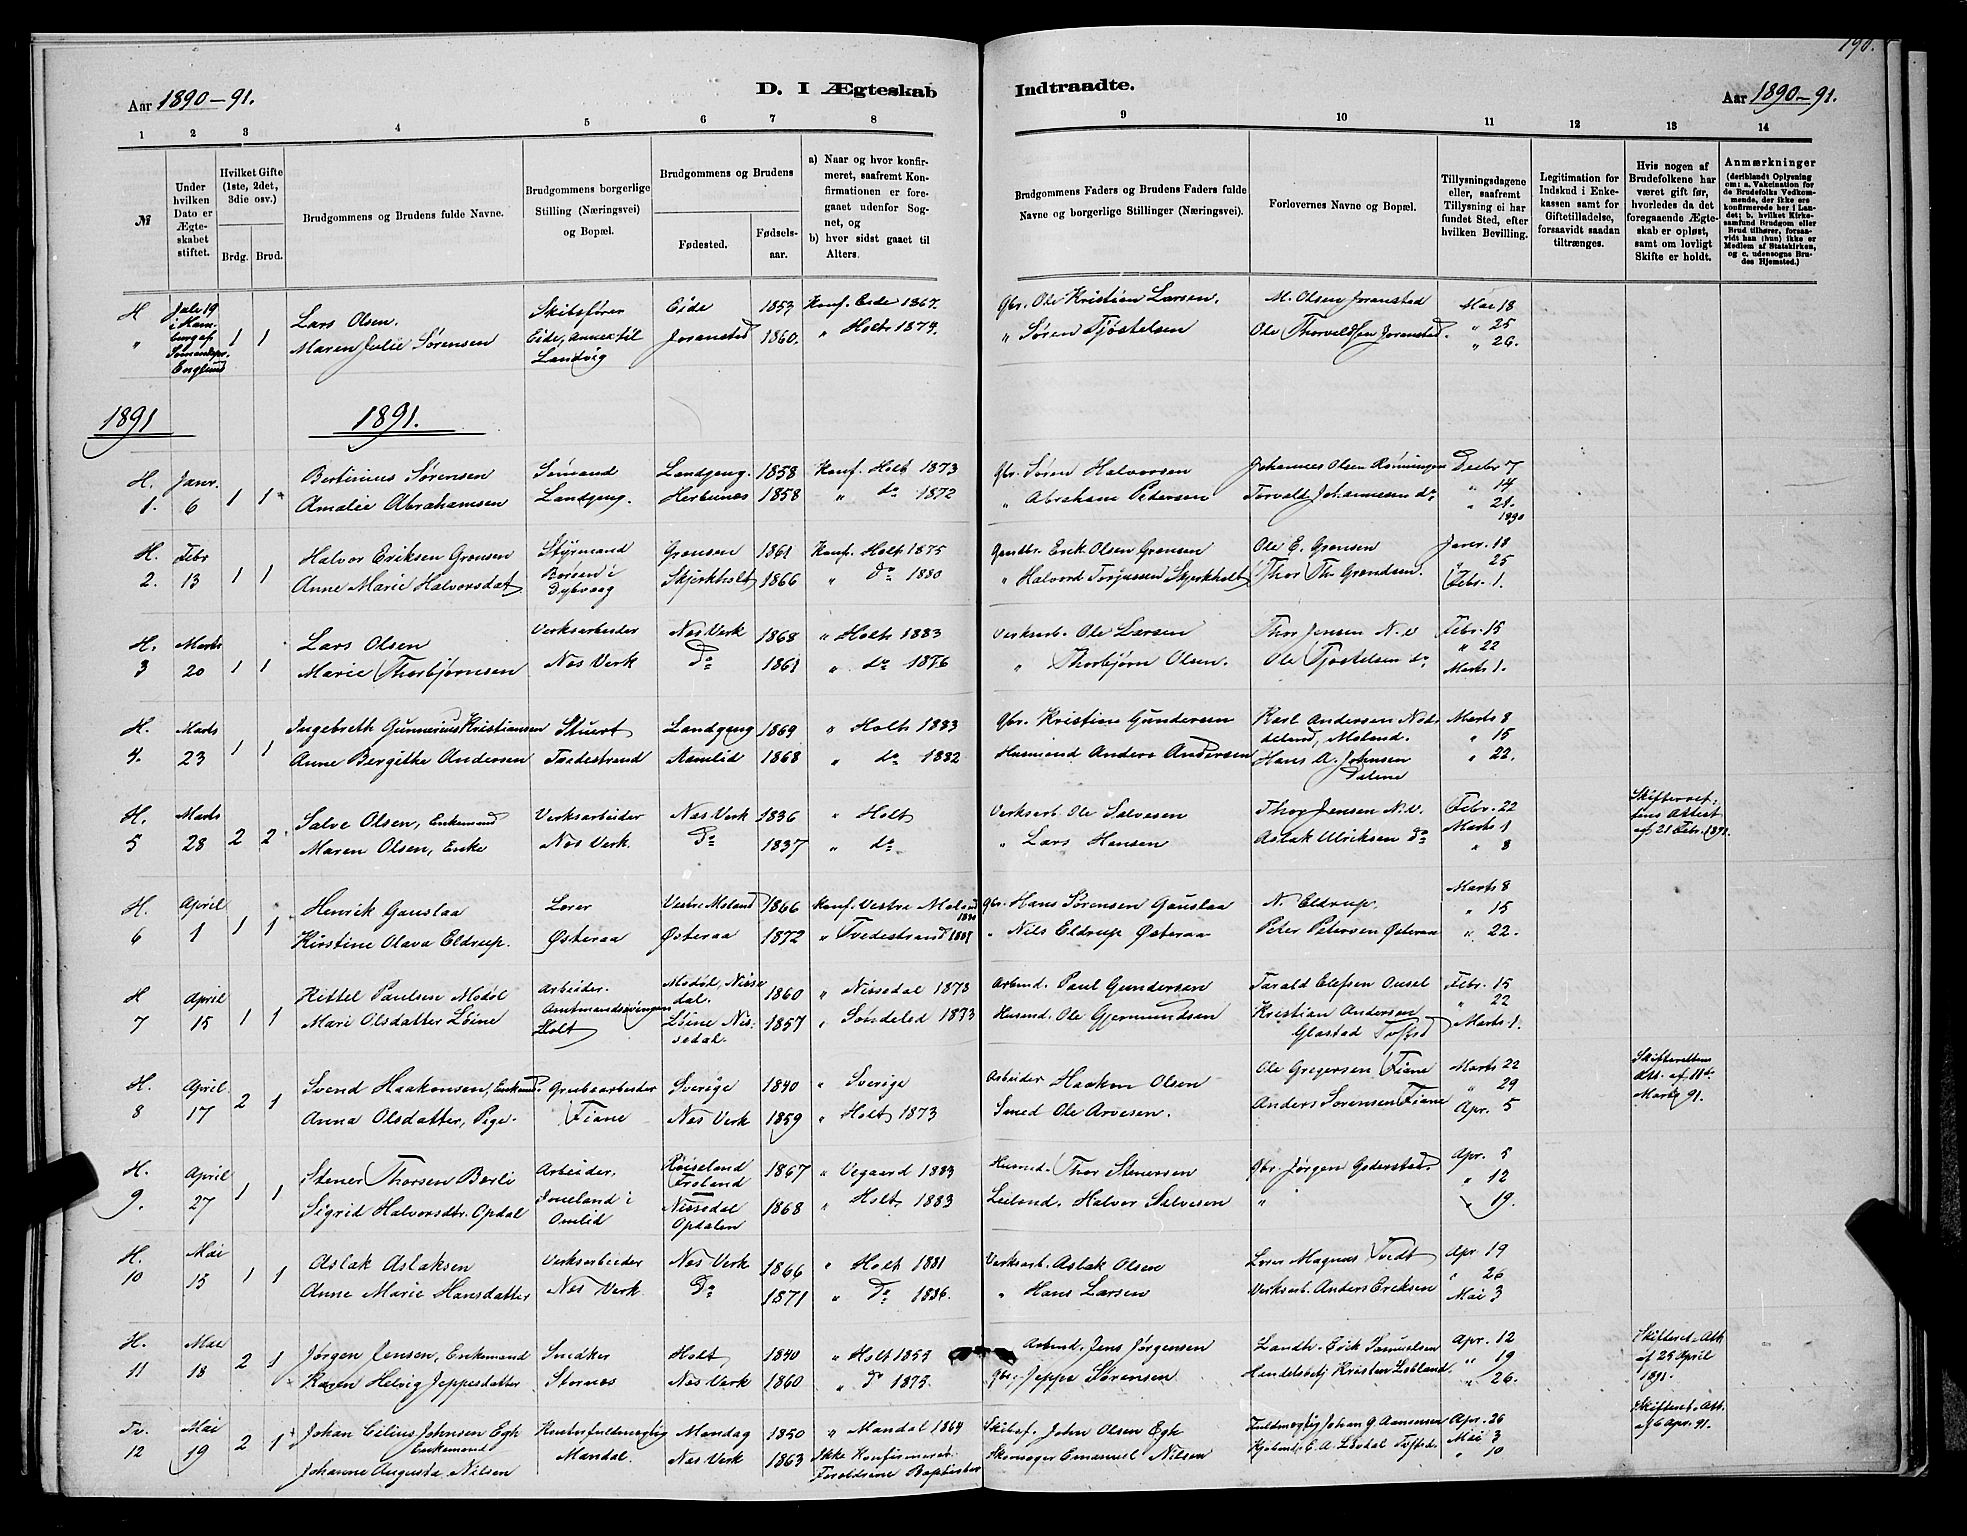 190.
Aar 1890-91. D. I Ægteskab Indtraadte. Aar 1890-91.
1 2 3 4 5 6 7 8 9 10 11 12 13 14
№
Under hvilken Dato er Ægteskabet stiftet.
Hvilket Gifte (1ste, 2det, 3die osv.)
Brdg. Brud.
Brudgommens og Brudens fulde Navne.
Brudgommens borgerlige Stilling (Næringsvei) og Bopæl.
Brudgommens og Brudens
Fødested. Fødselsaar.
a) Naar og hvor konfirmeret, saafremt Konfirmationen er foregaaet udenfor Sognet, og
b) hvor sidst gaaet til Alters.
Brudgommens Faders og Brudens Faders fulde Navne og borgerlige Stillinger (Næringsvei).
Forlovernes Navne og Bopæl.
Tillysningsdagene eller, saafremt Tillysning ei har fundet Sted, efter hvilken Bevilling.
Legitimation for Indskud i Enkekassen samt for Giftetilladelse, forsaavidt saadan tiltrænges.
Hvis nogen af Brudefolkene har været gift før, hvorledes da det foregaaende Ægteskab er opløst, samt om lovligt Skifte er holdt.
Anmærkninger (deriblandt Oplysning om: a. Vakcination for de Brudefolks Vedkommende, der ikke ere konfirmerede her i Landet; b. hvilket Kirkesamfund Brudgom eller Brud tilhører, forsaavidt han (hun) ikke er Medlem af Statskirken, og c. udensogns Brudes Hjemsted.)
H Lars Olsen. Skibsfører Eide 1853 Konf. Eide 1867. Gbr. Ole Kristian Larsen. M. Olsen Joranstad Mai 18
" 1 1 Maren Julie Sørensen Eide, Annex til Landvig Joranstad 1860. " Holt 1874. " Søren Tjøstelsen Ole Thorvaldsen Joranstad. " 25
" 26.
1891 1891.
H. Janr. Bertinius Sørensen Sømand Landgeng. 1858 Konf. Holt 1873 Gbr. Søren Halvorsen Johannes Olsen Rønningen Decbr 7
1. 6 1 1 Amalie Abrahamsen Landgeng. Herbunes 1858 " do 1872 " Abraham Pedersen Torvald Johannesen do " 14
" 21.
1890
H. Febr Halvor Eriksen Gronsen Styrmand Gronsen 1861 Konf. Holt 1875 Gaardbr. Erik Olsen Gronsen Ole E. Gronsen Janr. 18
2. 13 1 1 Anne Marie Halvorsdat Borsen i Dybvaag Skjerkholt 1866 " do 1880 " Halvord Torjussen Skjerkholt Thor Th. Grendsen. " 25
Febr. 1.
H. Marts Lars Olsen Verksarbeider Næs Verk 1868 " Holt 1883 Verksarb. Ole Larsen Thor Jensen N.V Febr. 15
3 20 1 1 Marie Thorbjørnsen Næs Verk do 1861 " do 1876 " Thorbjørn Olsen. Ole Tjøstelsen do " 22
Marts 1.
H. Marts Ingebreth Gunnerius Kristiansen Stuert Landgeng 1869 " Holt 1883 Gbr. Kristine Gundersen Karl Andersen Nedebeland, Moland. Marts 8
4. 23 1 1 Anne Bergithe Andersen Tvedestrand Aamlid 1868 " do 1882 Husmand Anders Andersen Hans A. Johnsen Dalene " 15
" 22.
H. Marts Salve Olsen, Enkemand Verksarbeider Næs Verk 1836 " Holt Verksarb. Ole Salvesen Thor Jensen N.V. Febr. 22 Skifterettens Attest
5 28 2 2 Maren Olsen, Enke Næs Verk. do 1837 " do " Lars Hansen Aslak Ulriksen do Marts 1 af 21 Febr. 1891.
" 8
H. April Henrik Gauslaa Lærer Vestre Moland 1866 Konf. Vestre Moland 1880 Gbr. Hans Sørensen Gauslaa N. Eldrup. Marts 8
6 1 1 1 Kirstine Olava Eldrup. Østeraa Østeraa 1872 " Tvedestrand 1887 " Nils Eldrup Østeraa Peter Petersen Østeraa " 15
" 22.
H April Kittel Paulsen Modøl Arbeider. Modøl, Nissedal. 1860 " Nissedal 1873 Arbmd. Paul Gundersen Tarald Olefsen Ousel Febr. 15
7 15 1 1 Mari Olsdatter Løine Amtmandssvingen Holt Løine Nissedal. 1857 " Søndeled 1873 Husmd. Ole Gjermundsen Kristian Andersen Glastad " 22
Marts 1.
H. April Svend Haakonsen, Enkemd. Grubearbeider Sverige 1840 " Sverige Arbeider Haaken Olsen Ole Gregersen Fiane Marts 22 Skifterettens
8 17 2 1 Anna Olsdatter, Pige. Fiane Næs Verk 1859 " Holt 1873 Smed Ole Arvesen. Anders Sørensen Fiane " 29 Att. af 11te
Apr. 5 Marts 91.
H. April Stener Thorsen Berli Arbeider. Froland 1867 " Vegaard 1883 Husmd. Thor Stenersen Gbr. Jørgen Goderstad. Apr. 5
9. 27 1 1 Sigrid Halvorsdtr. Opdal Joneland i Omlid Nissedal Opdalen 1868 " Holt 1883 Leilænd. Halvor Salvesen " " 12
" 19.
H. Mai Aslak Aslaksen Verksarbeider Næs Verk 1866 " Holt 1881 Verksarb. Aslak Olsen Lærer Magnus Tvedt Apr. 19
10 15 1 1 Anne Marie Hansdatter Næs Verk do 1871 " do 1886. " Hans Larsen Verksarb. Anders Eriksen " 26
Mai 3
H. Mai Jørgen Jensen, Enkemand Snedker Holt 1840 " Holt 1855 Arbmd. Jens Jørgensen Landh. Erik Samuelsen Apr. 12 Skifteret. Att.
11 18 2 1 Karen Helvig Jeppesdatter Stornæs Næs Verk 1860 " do 1875. Gbr. Jeppe Sørensen Handelsbetj Kristen Lebland. " 19 af 25 April
" 26. 1891.
Tv. Mai Johan Cilius Johnsen Egh Enkemand Kontorfuldmægtig Mandag 1850 " Mandal 1864 Skibsf. John Olsen Egh Fuldmægtig Johan G. Aamonsen Apr. 26 Skifteret. Att.
12 19 2 1 Johanne Augusta Nilsen Mandal. Næs Verk 1863 Ikke Konfirmeret. Forældrene Baptister Skomager Emanuel Nilsen E. A. Løvdal Mai 3 af 6 Apr. 91.
" 10